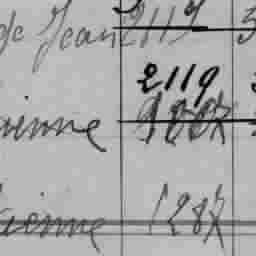 de Jean 2119
2119
ienne 1887
ienne 1287